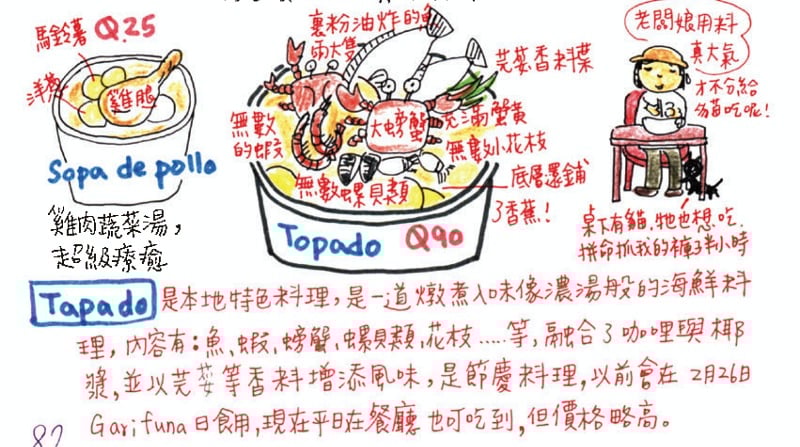 馬鈴薯 Q.25
洋蔥
雞腿
Sopa de pollo
雞肉蔬菜湯，
超級療癒
裹粉油炸的魚
兩大隻
芫荽香料葉
無數
的蝦
大螃蟹
充滿蟹黃
無數小花枝
無數螺貝類
底層還鋪
了香蕉！
Topado Q90
老闆娘用料
真大氣
才不分給
貓吃呢！
桌下有貓，牠也想吃，
拼命抓我的褲子半小時
Tapado 是本地特色料理，是一道燉煮入味像濃湯般的海鮮料
理，內容有：魚、蝦、螃蟹、螺貝類、花枝.....等，融合了咖哩與椰
漿，並以芫荽等香料增添風味，是節慶料理，以前會在2月26日
Garifuna日食用，現在平日在餐廳也可吃到，但價格略高。